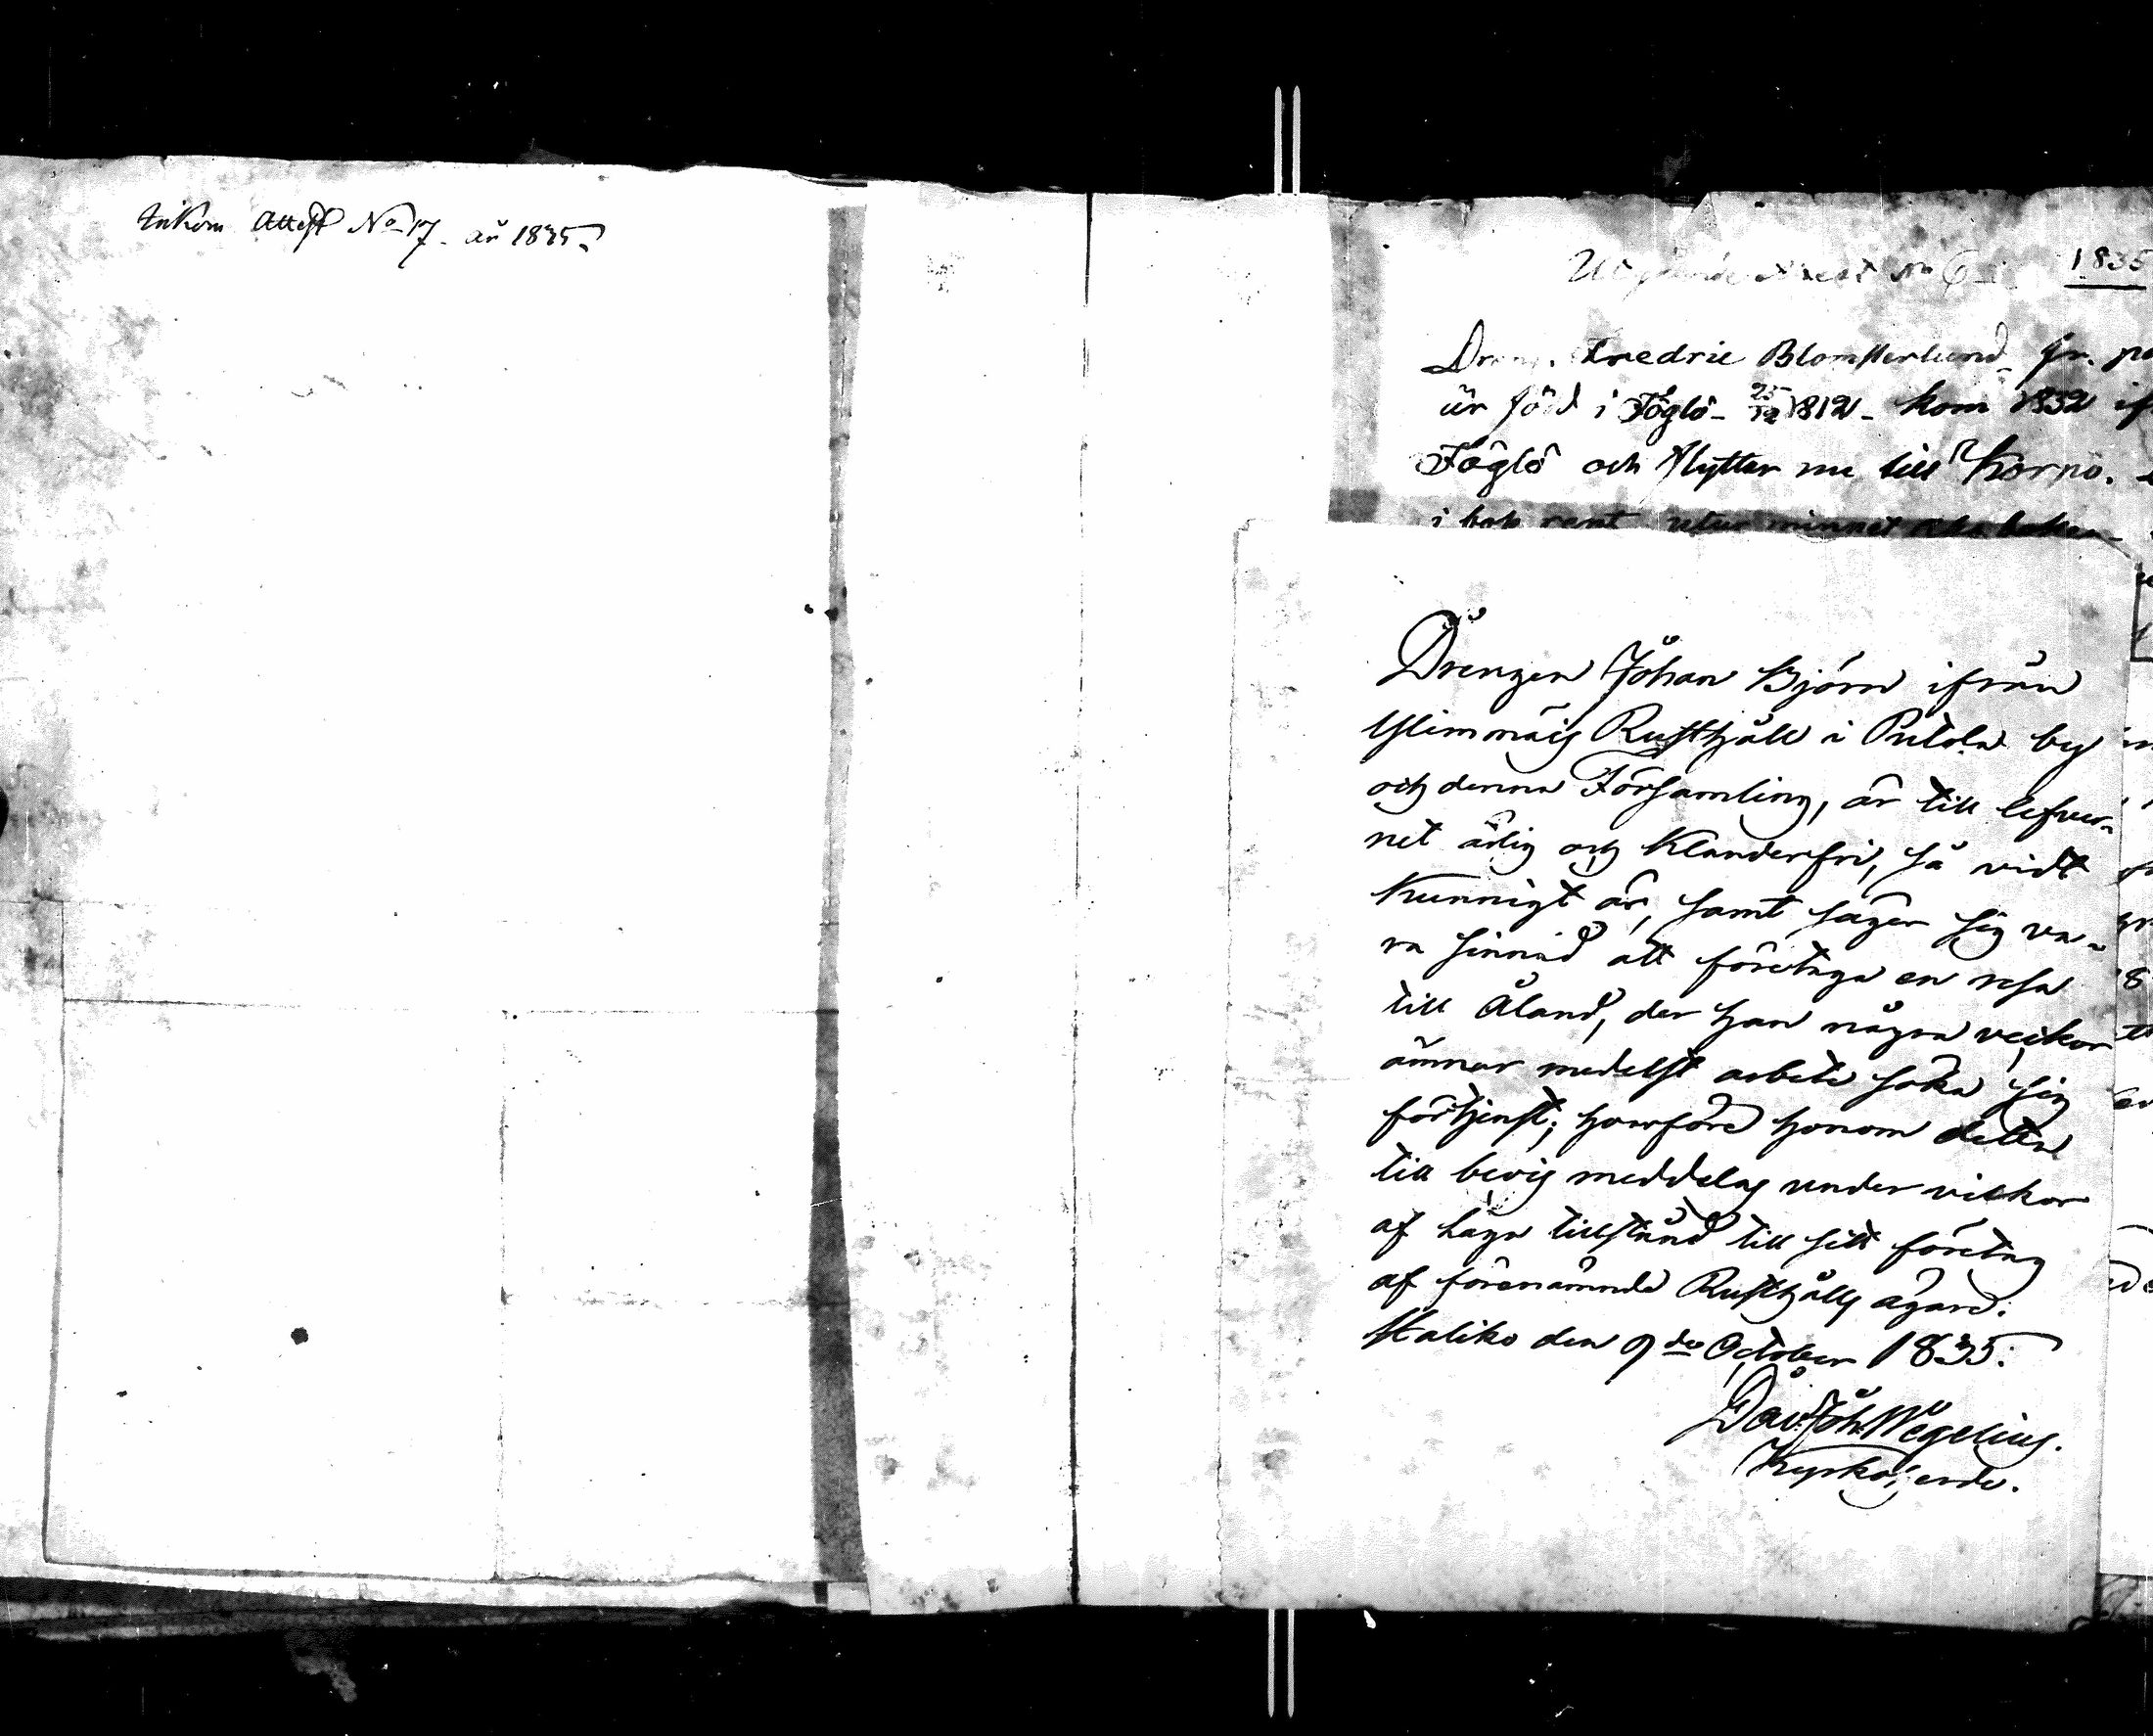 Inkom Attest No 17. år 1835.
Utgående Attest No 6 1835
Dreng. Fredric Blomsterlund, fr. på
är född i Föglö 25/12 1812 - kom 1832 if
Föglö och flyttar nu till Korpo.
i bok rent utur minnet
Drengen Johan Björn ifrån
Ylimmäis Rusthåll i Pulola by
och denna Församling, är till lefver-
net ärlig och klanderfri, så vidt
kunnigt är, samt säger sig va-
ra sinnad att företaga en resa
till Åland, der han några veckor
ämnar medelst arbete söka sig
förtjenst; hvarföre honom detta
till bevis meddelas under vilkor
af laga tillstånd till sitt företag
af förenämnde Rusthålls ägare.
Haliko den 9de October 1835.
Dav. Joh. Wegelius.
Kyrkoherde.